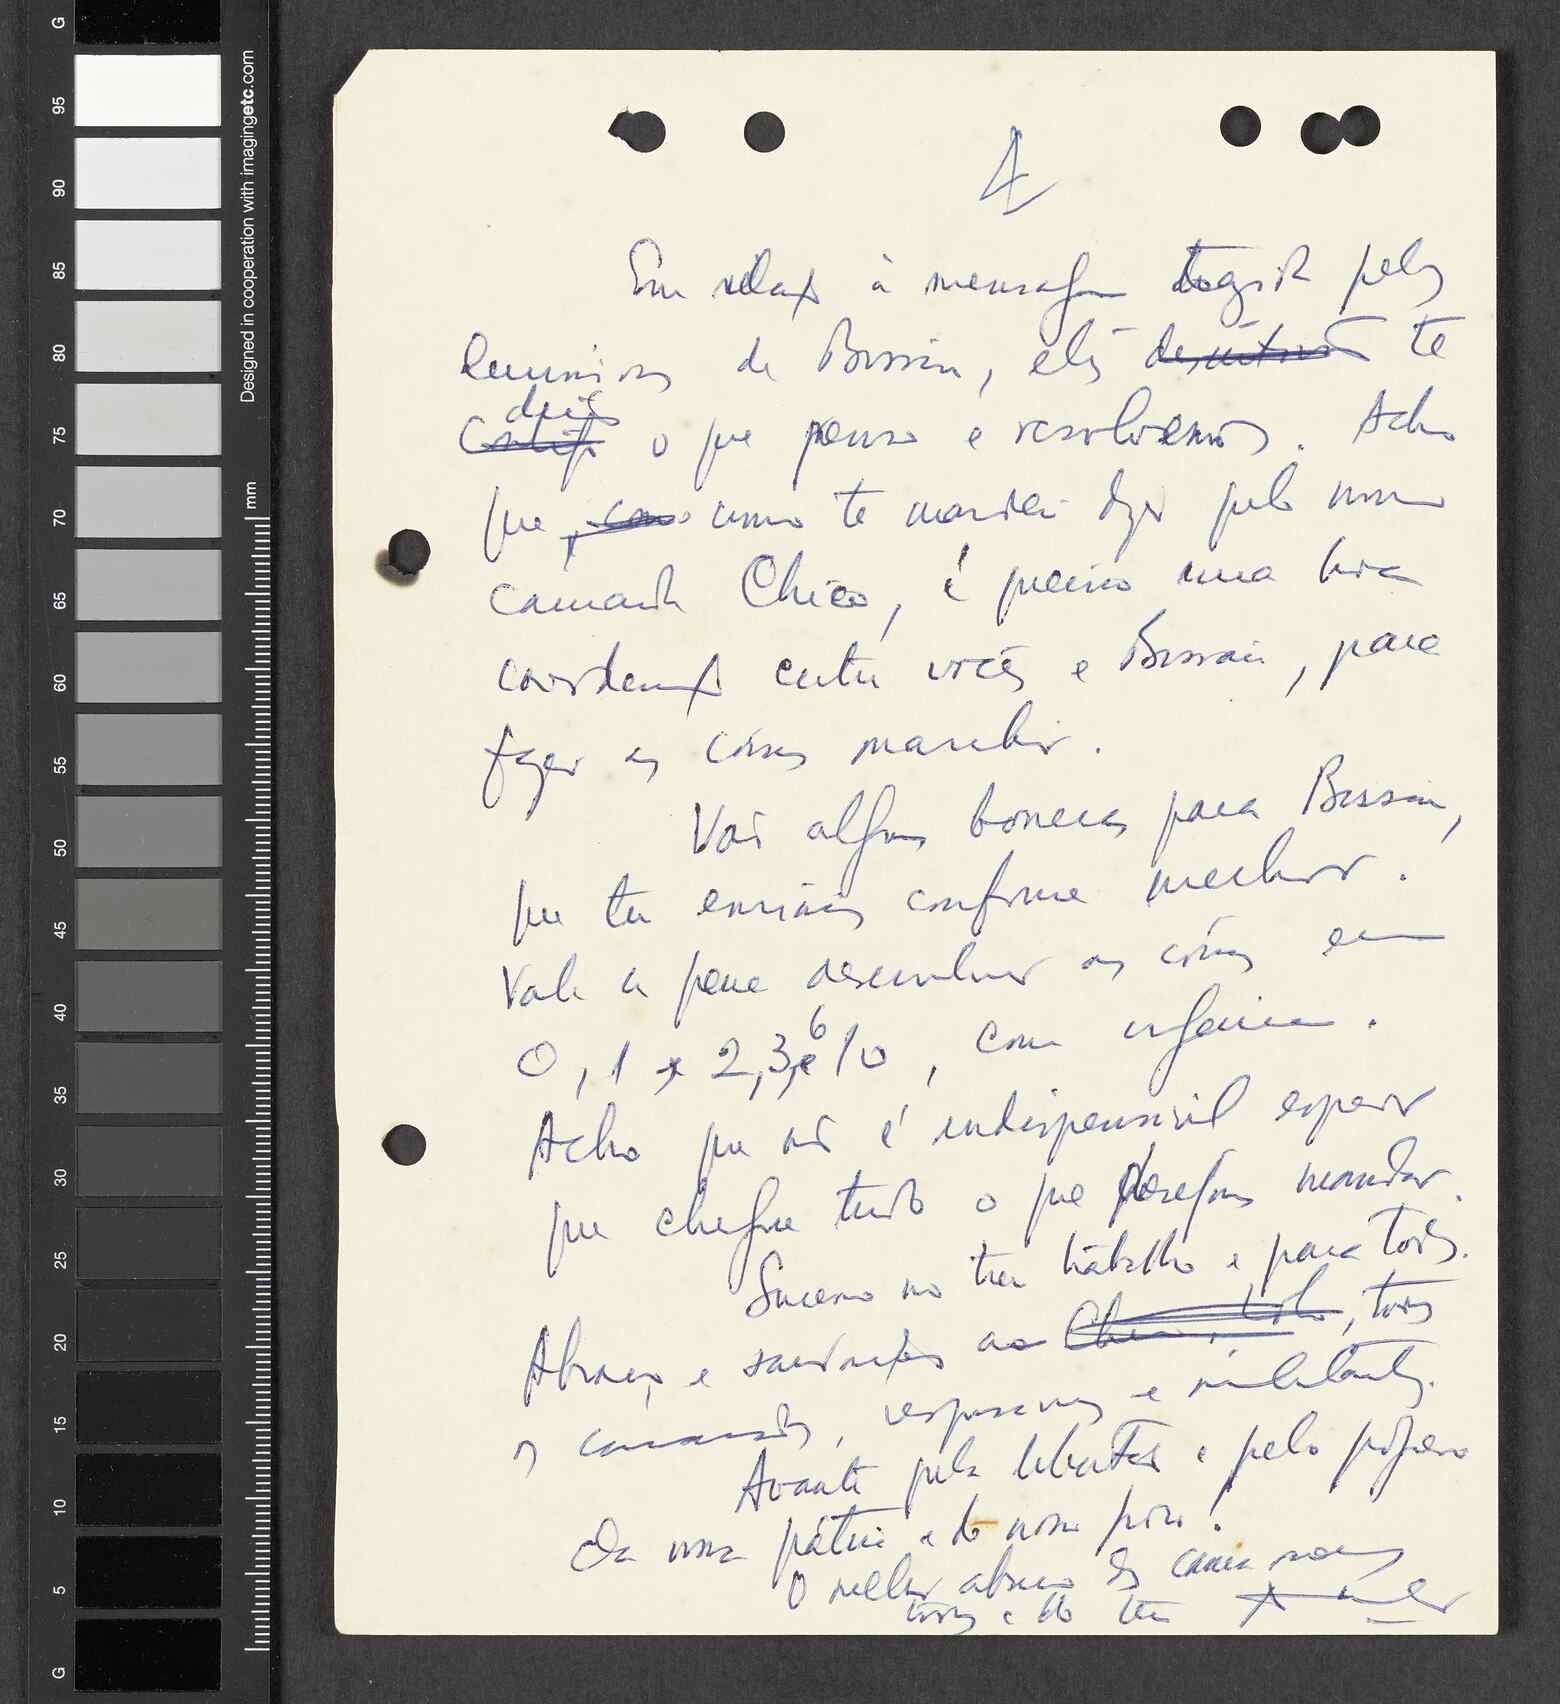 4
Em relação à mensagem pelos
de Bissau, eles te
dirão o que penso e resolvemos. Acho
que, como te mandei dizer pelo nosso
camarada Chico, é preciso uma boa
coordenação entre vocês e Bissau, para
fazer as coisas marchar.
Vão alguns bonecos para Bissau,
que tu enviarás conforme melhor.
Vale a pena desenvolver as coisas em
0, 1 e 2, 3, 6 10, com urgência.
Acho que não é indispensável esperar
que chegue tudo o que desejamos mandar.
Sucesso no teu trabalho e para todos.
Abraços e saudações ao todos
os camaradas, responsáveis e militantes.
Avante pela libertação e pelo progresso
da nossa pátria e do nosso povo!
O melhor abraço dos camaradas
todos e do teu
G
95
90
85
80
75
70
65
60
55
50
45
40
35
30
25
20
15
10
5
G
mm
Designed in cooperation with imagingetc.com